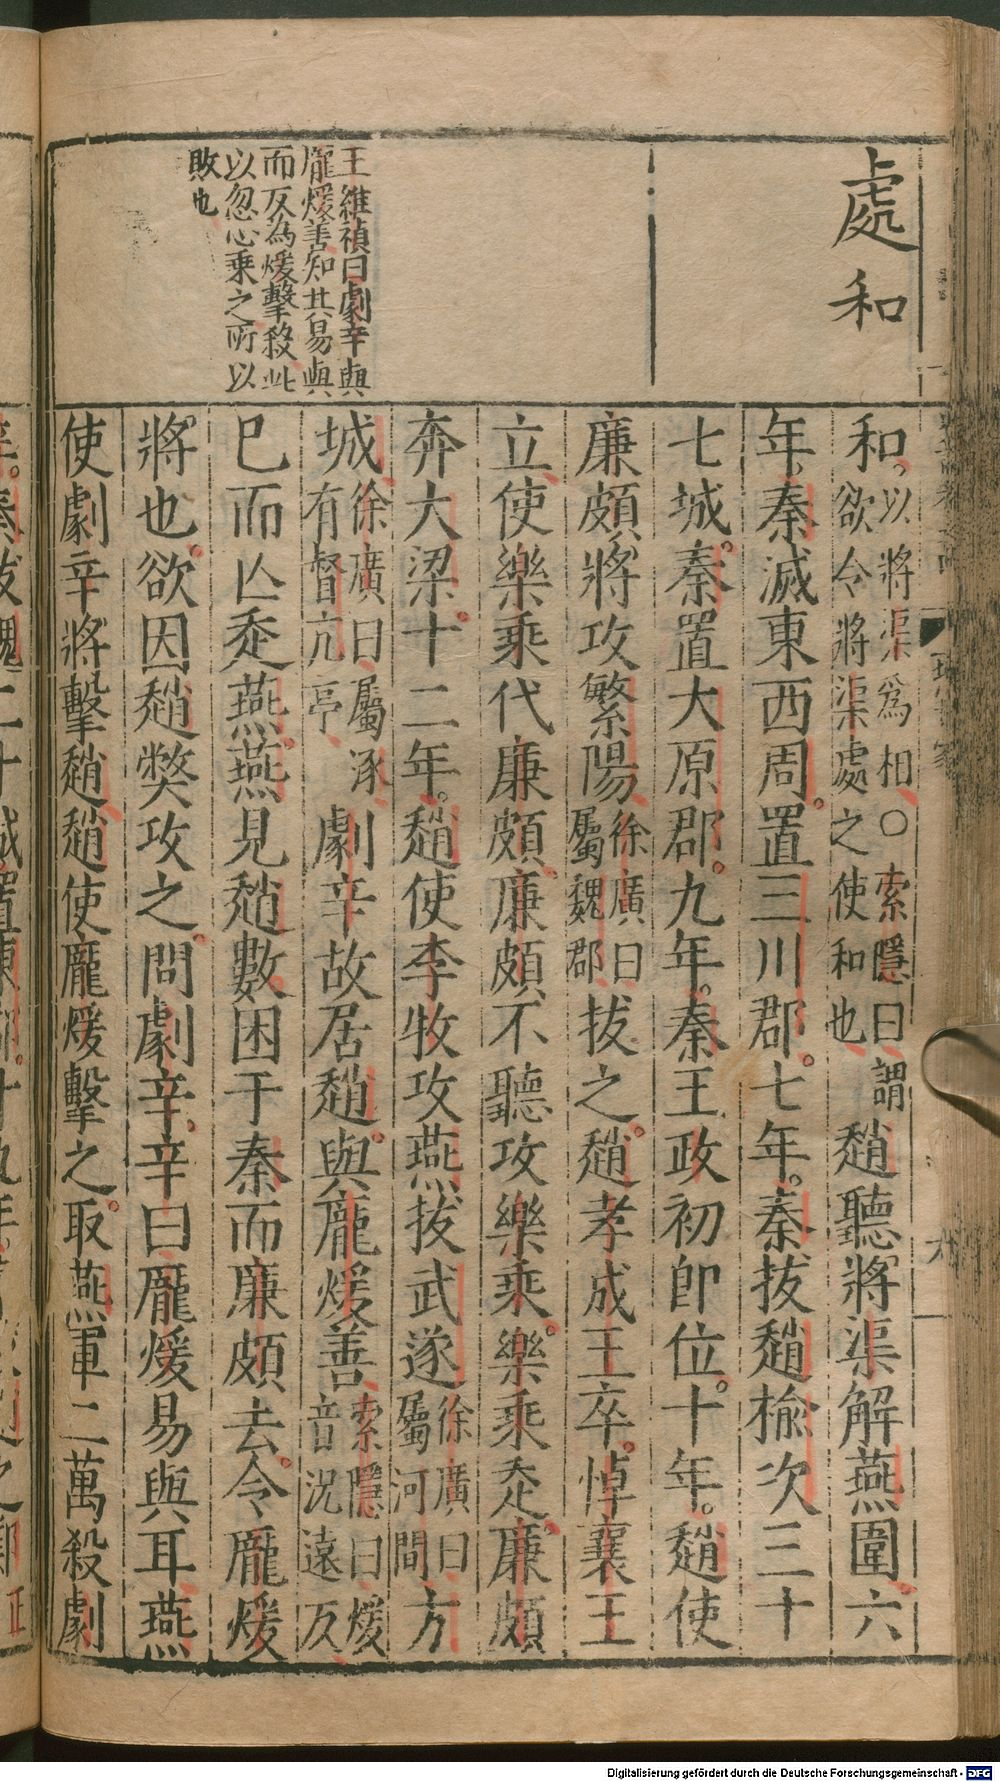 處和
王維禎曰劇辛與
龐煖善知其易與
而反為煖擊殺此
以忽心乗之所以
敗也
和以將渠爲相○索隱曰謂
欲令將渠處之使和也趙聽將渠解燕圍六
年秦滅東西周置三川郡七年秦拔趙楡次三十
七城秦置大原郡九年秦王政初卽位十年趙使
廉頗將攻繁陽徐廣曰
屬魏郡拔之趙孝成王卒悼襄王
立使樂乗代廉頗廉頗不聽攻樂乗樂乗走廉頗
奔大梁十二年趙使李牧攻燕拔武遂徐廣曰
屬河間方
城徐廣曰屬涿
有督亢亭劇辛故居趙與龐煖善索隱曰煖
音況遠反
巳而亾走燕燕見趙數困于秦而廉頗去令龐煖
將也欲因趙獘攻之問劇辛辛曰龐煖易與耳燕
使劇辛將擊趙趙使龐煖擊之取燕軍二萬殺劇
Digitalisierung gefördert durch die Deutsche Forschungsgemeinschaft - DFG